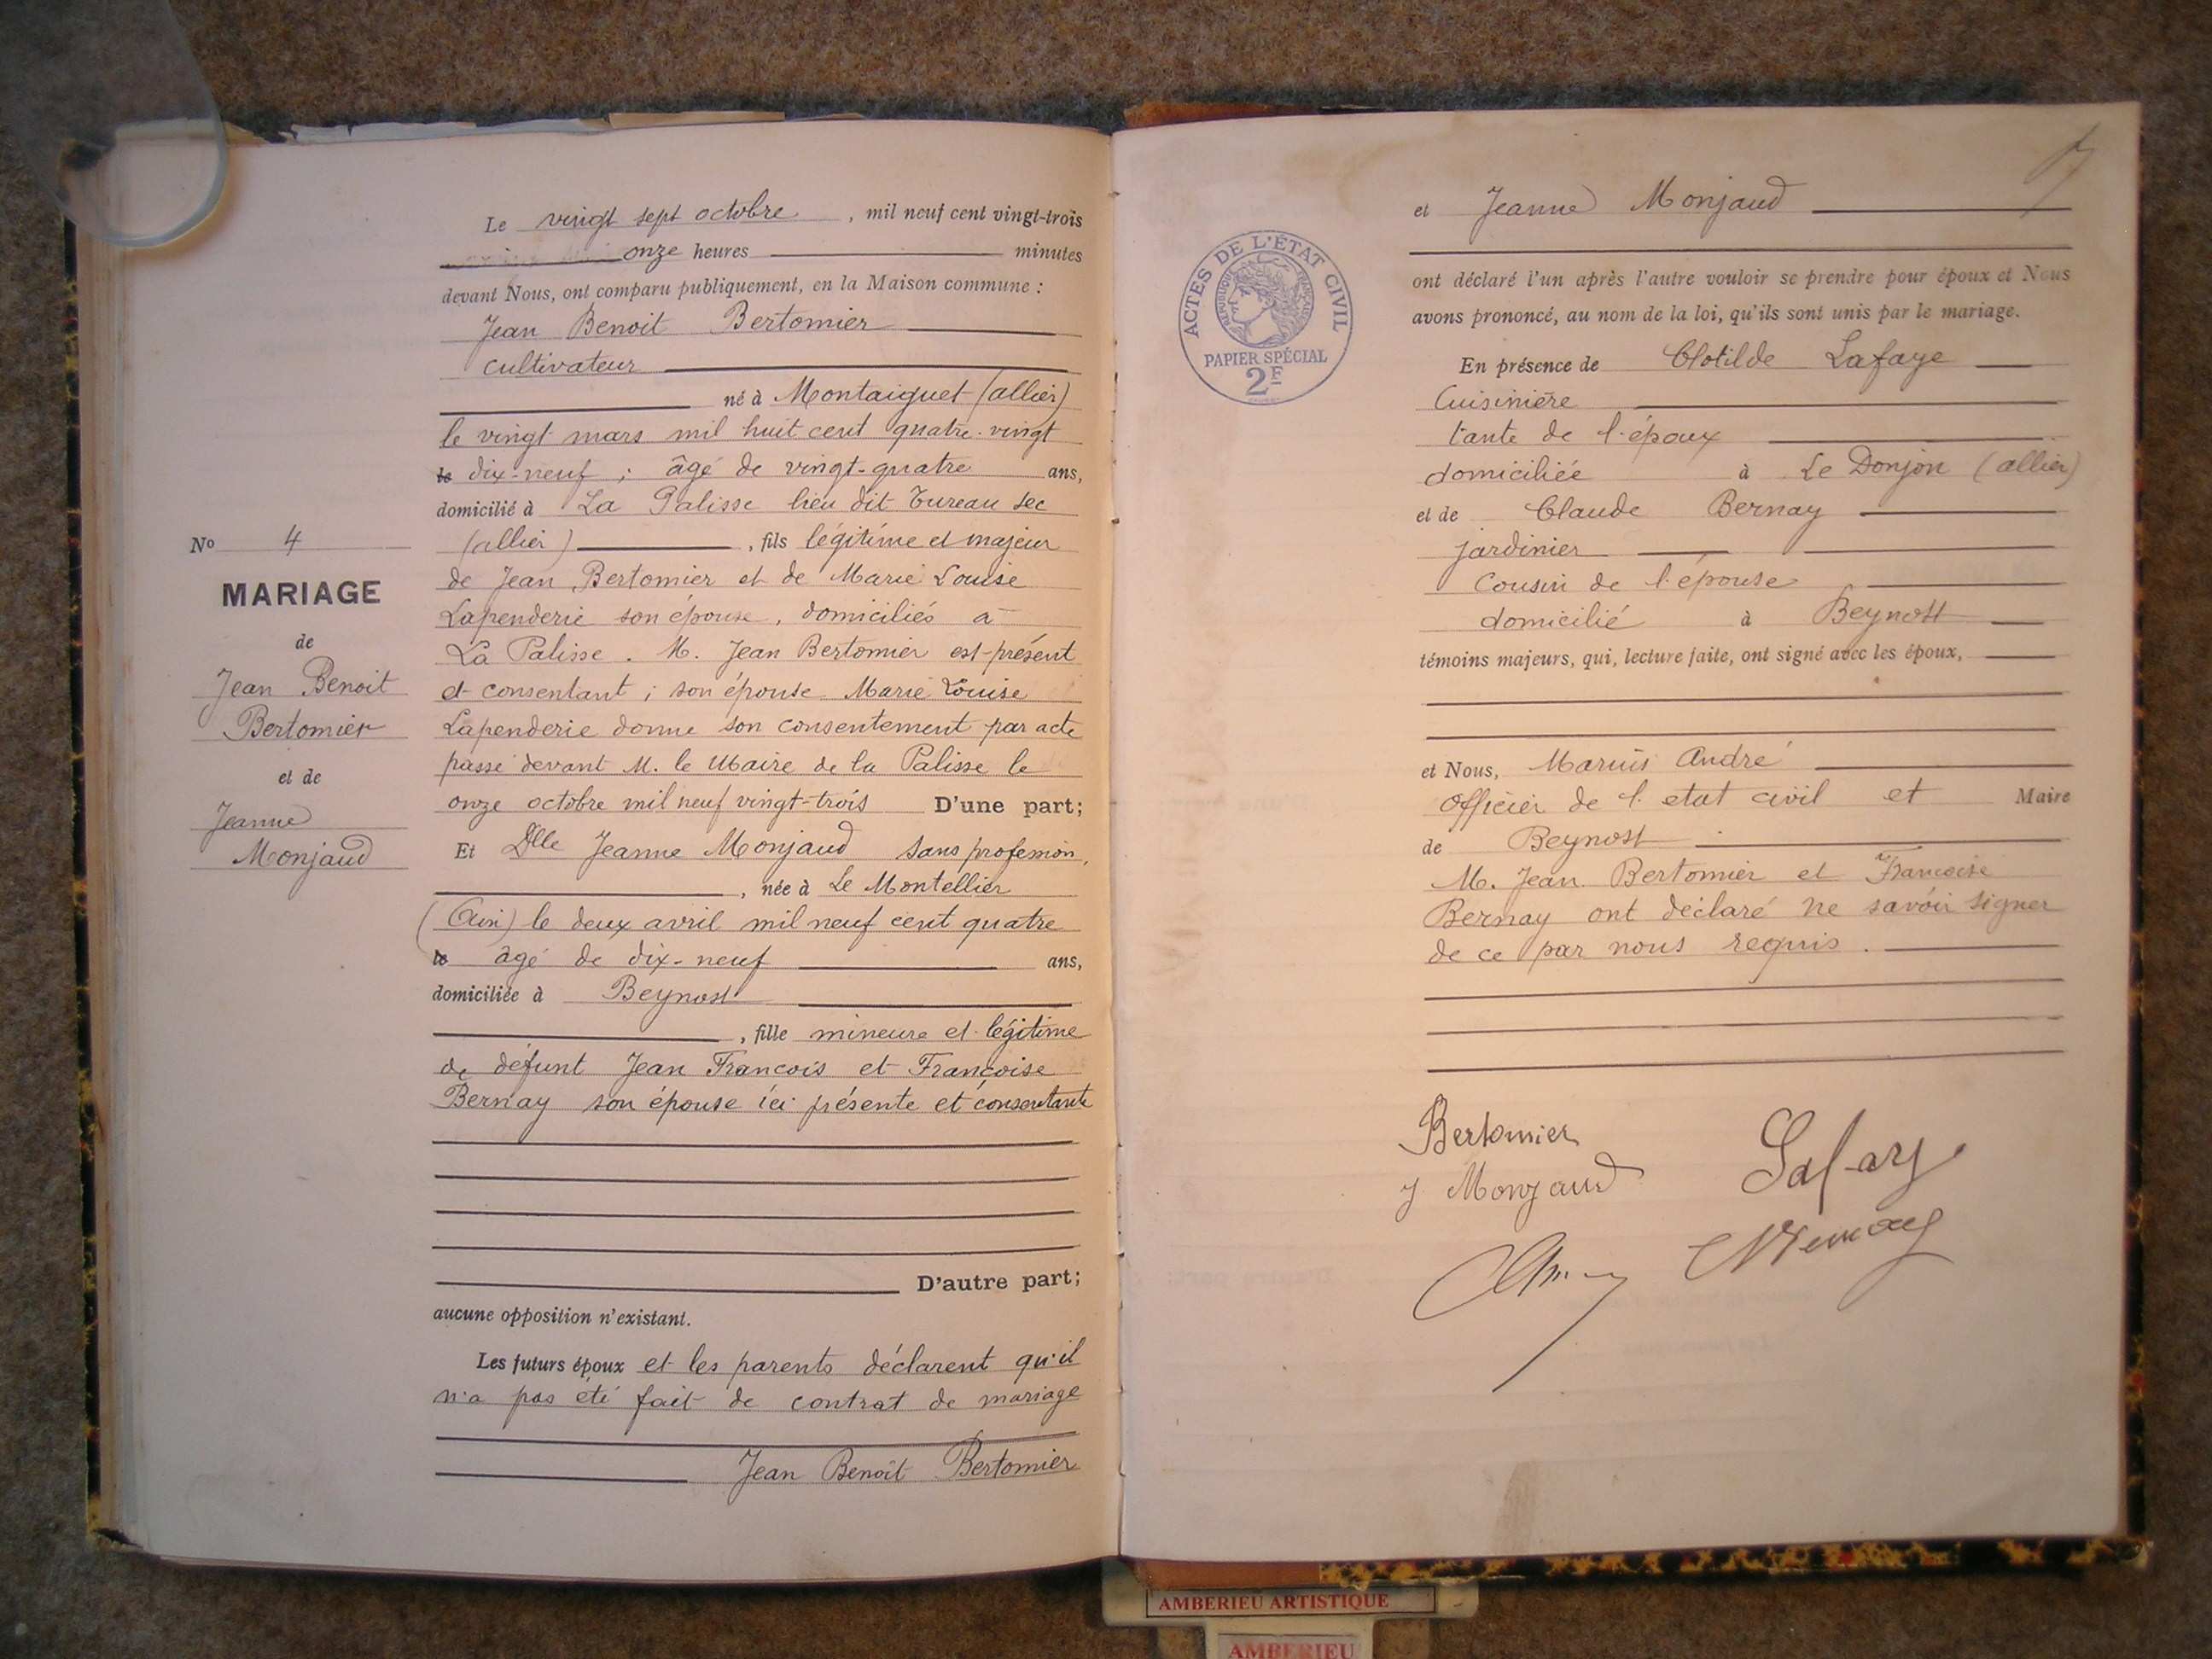 Le vingt sept octobre, mil neuf cent vingt-trois
onze heures minutes
devant Nous, ont comparu publiquement, en la Maison commune :
Jean Benoit Bertomier
cultivateur
né à Montaiguet (allier)
le vingt mars mil huit cent quatre-vingt
le dix-neuf ; âgé de vingt-quatre ans,
domicilié à La Palisse lieu dit Tureau sec
(allier), fils légitime et majeur
de Jean Bertomier et de Marie Louise
Lapenderie son épouse, domiciliés à
La Palisse. M. Jean Bertomier est présent
et consentant ; son épouse Marie Louise
Lapenderie donne son consentement par acte
passé devant M. le Maire de la Palisse le
onze octobre mil neuf vingt-trois D'une part;
Et Dlle Jeanne Monjaud sans profession,
, née à Le Montellier
(Ain) le deux avril mil neuf cent quatre
le âgé de dix-neuf ans,
domiciliée à Beynost
, fille mineure et légitime
de défunt Jean Francois et Françoise
Bernay son épouse ici présente et consentante
D'autre part;
aucune opposition n'existant.
Les futurs époux et les parents déclarent qu'il
n'a pas été fait de contrat de mariage
Jean Benoît Bertomier
No 4
MARIAGE
de
Jean Benoit
Bertomier
et de
Jeanne
Monjaud
et Jeanne Monjaud
ACTES DE L'ÉTAT CIVIL
RÉPUBLIQUE FRANÇAISE
PAPIER SPÉCIAL
2F
ont déclaré l'un après l'autre vouloir se prendre pour époux et Nous
avons prononcé, au nom de la loi, qu'ils sont unis par le mariage.
En présence de Clotilde Lafaye
Cuisinière
tante de l'époux
domiciliée à Le Donjon (allier)
et de Claude Bernay
jardinier
Cousin de l'épouse
domicilié à Beynost
témoins majeurs, qui, lecture faite, ont signé avec les époux,
et Nous, Marius André
Officier de l'etat civil et Maire
de Beynost
M. Jean Bertomier et Francoise
Bernay ont déclaré ne savoir signer
de ce par nous requis.
Bertomier
J Monjaud
AMBERIEU ARTISTIQUE
AMBERIEU